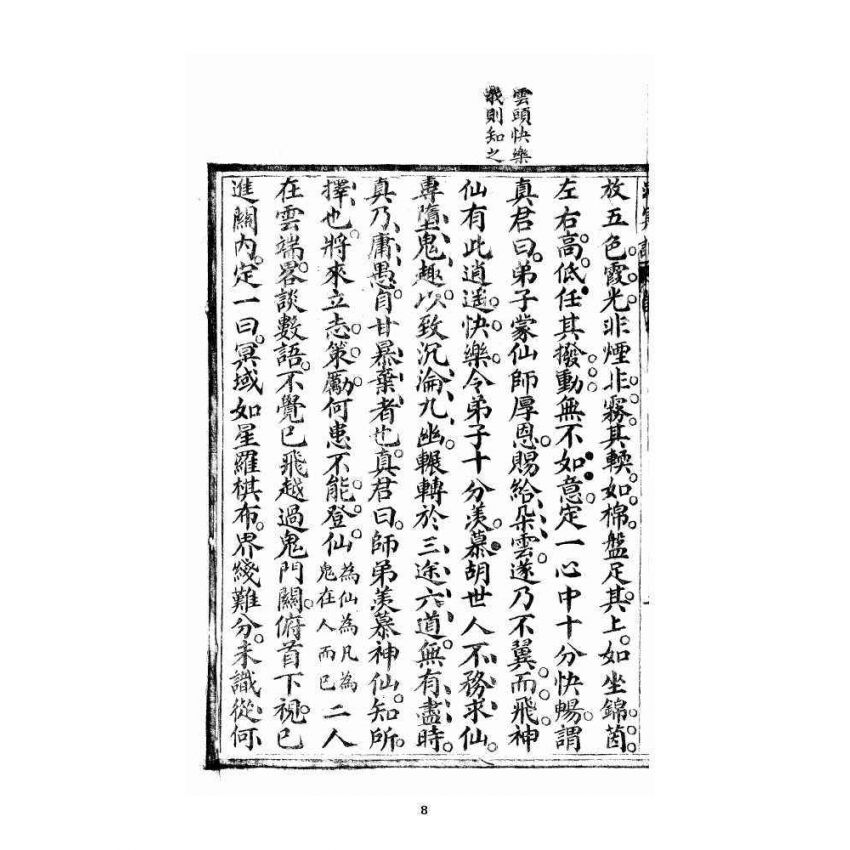 雲頭快樂
我則知之
放五色霞光非煙非霧其輭如棉盤足其上如坐錦茵
左右高低任其撥動無不如意定一心中十分快暢謂
真君曰弟子蒙仙師厚恩賜給朵雲遂乃不翼而飛神
仙有此逍遥快樂令弟子十分羡慕胡世人不務求仙
專墮鬼趣以致沉淪九幽輾轉於三途六道無有盡時
真乃庸愚自甘暴棄者也真君曰師弟羡慕神仙知所
擇也將來立志策勵何患不能登仙為仙為凡為鬼在人而已二人
在雲端畧談數語不覺已飛越過鬼門關俯首下視已
進關內定一曰冥域如星羅棋布界綫難分未識從何
8